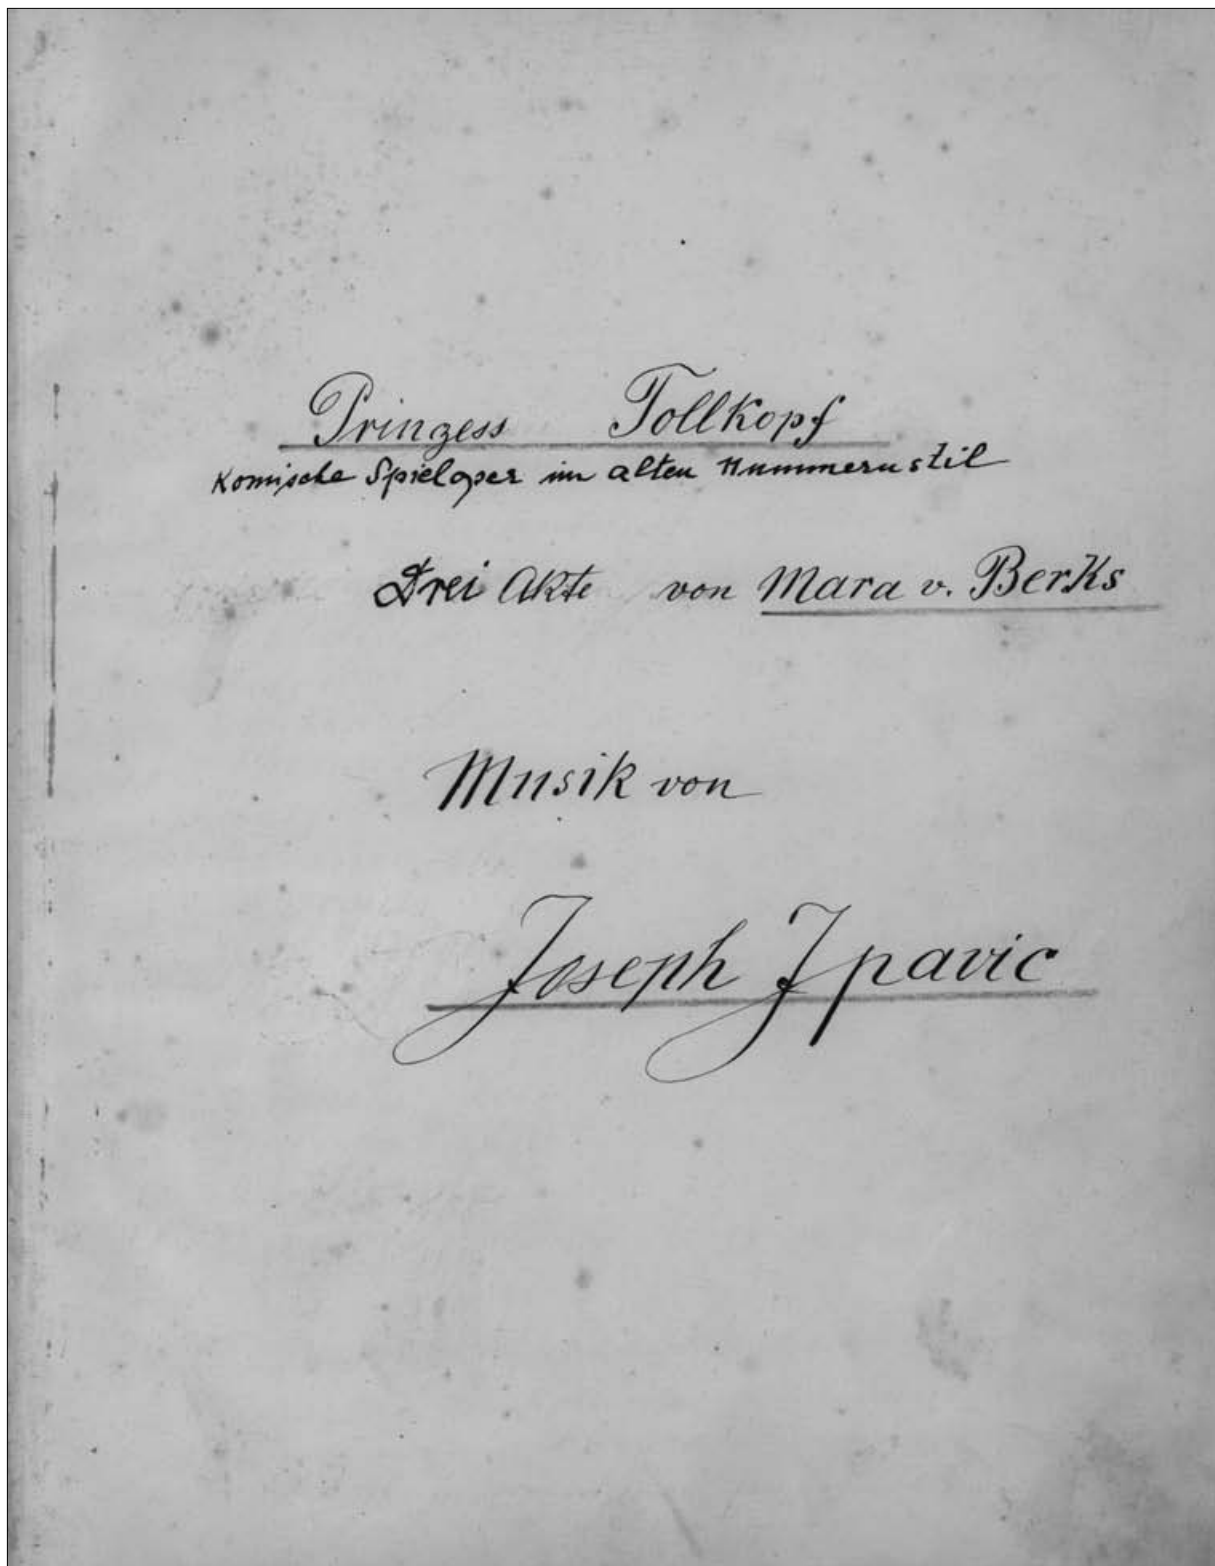 Prinzess Tollkopf
Komische Spieloper im alten Nummernstil
Drei Akte von Mara v. Berks
Musik von
Joseph Ipavic